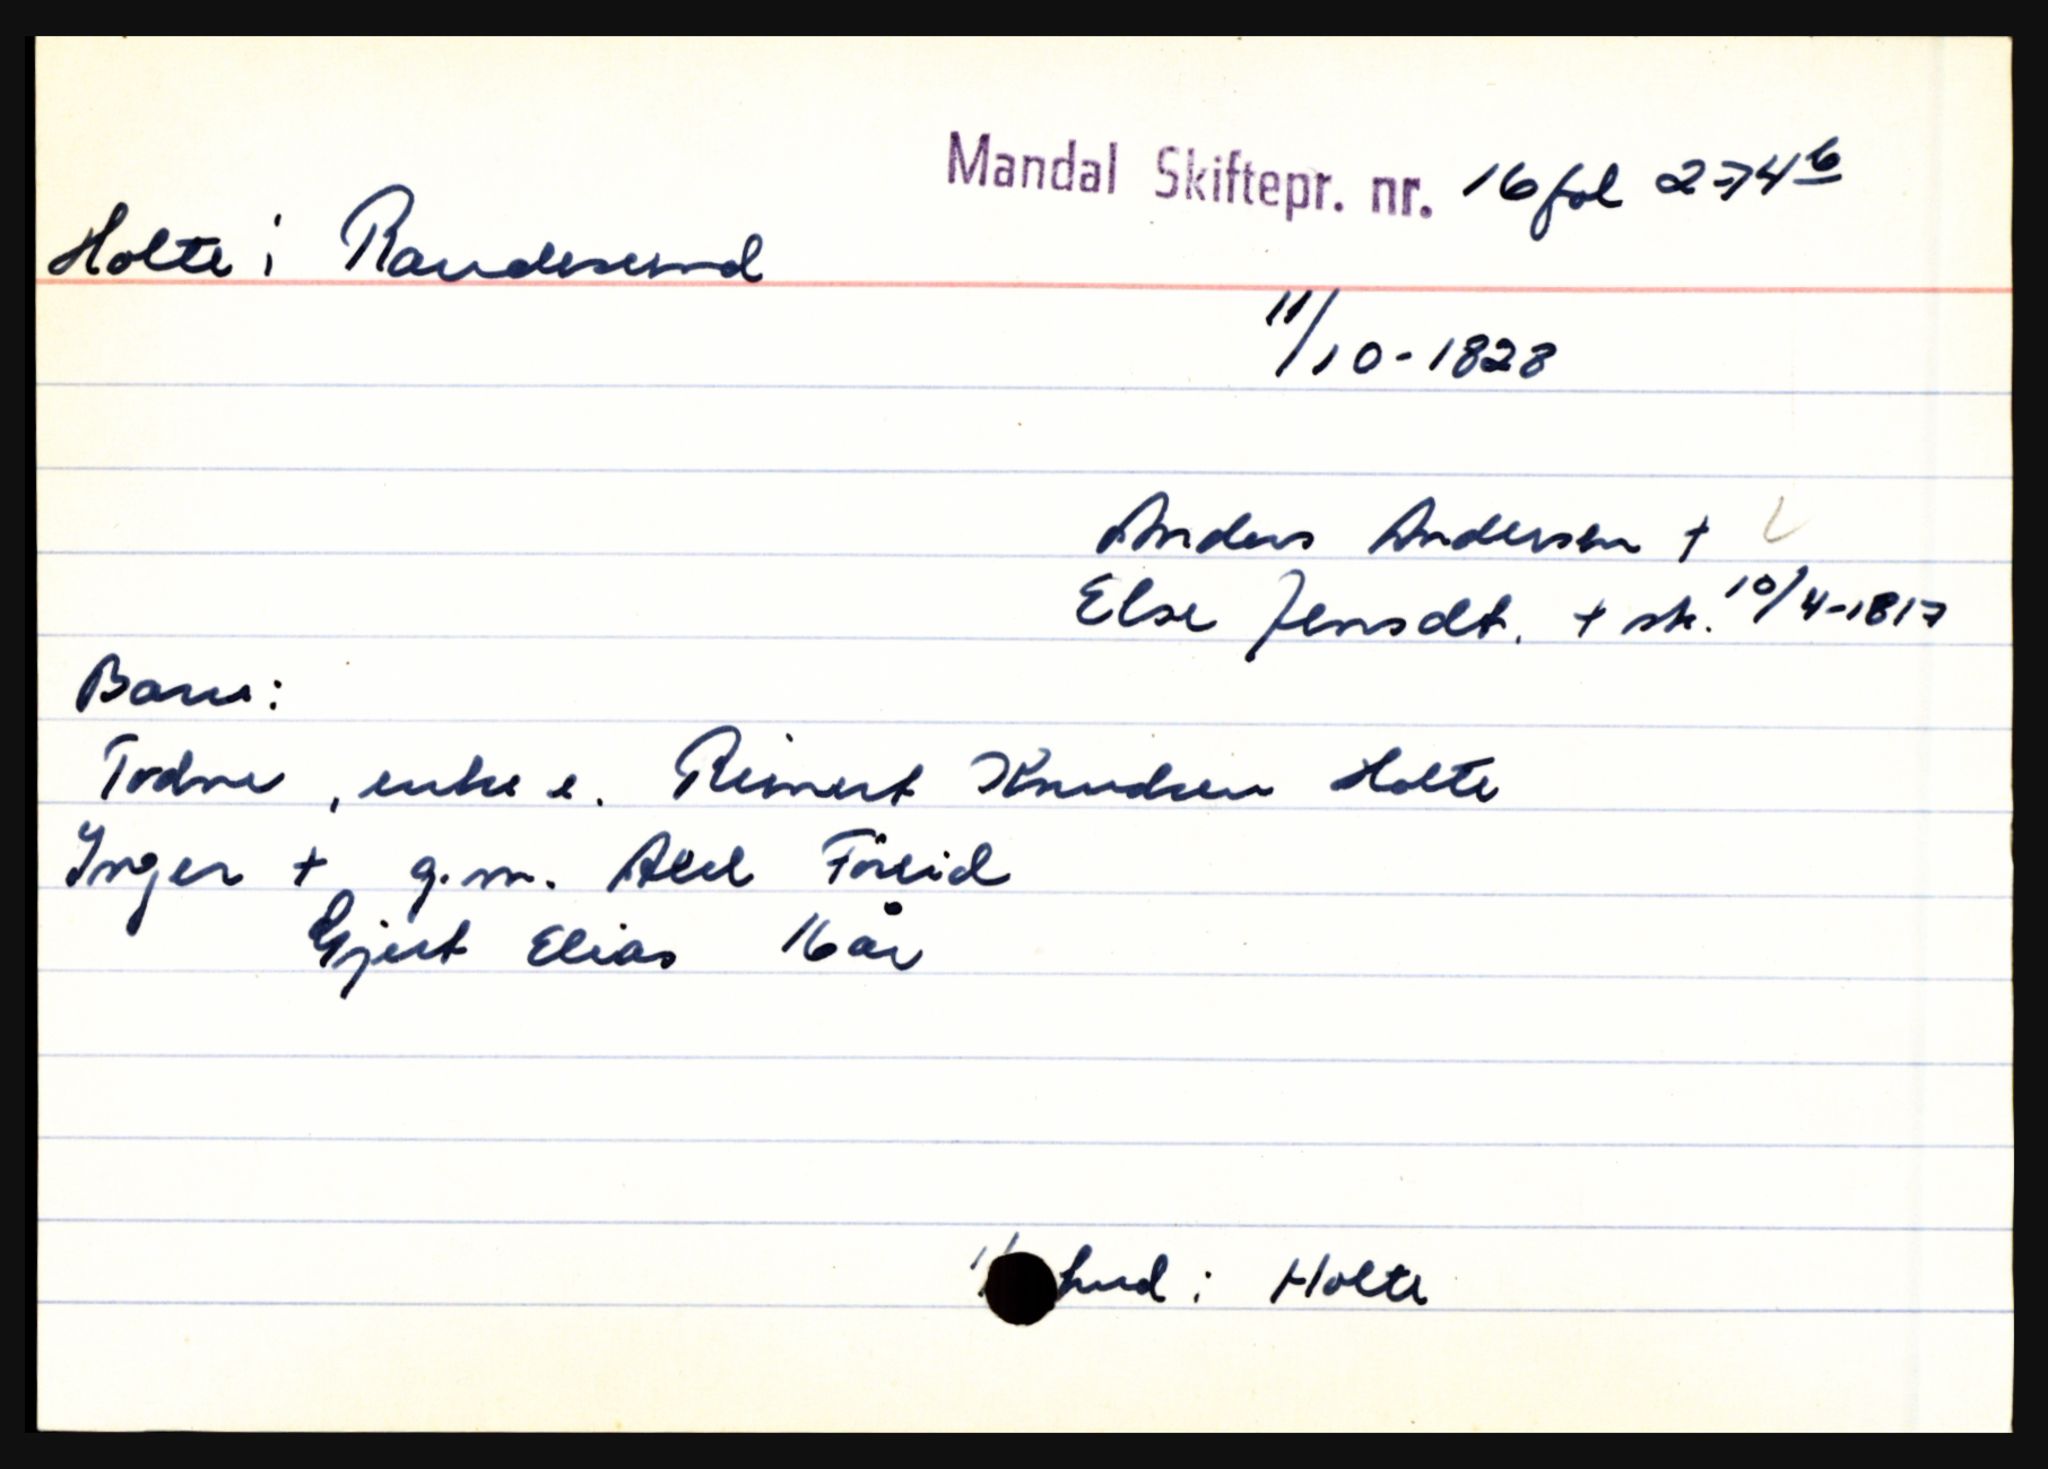 Mandal Skiftepr. nr. 16 fol 274 b
Holte i Randesund
11/10-1828
Anders Andersen +
Else Jensdt. + sk. 10/4-1817
Barn:
Todne, enke e. Reinert Knudsen Holte
Inger + g.m. Axel Föreid
Gjert Elias 16 år
hud i Holte